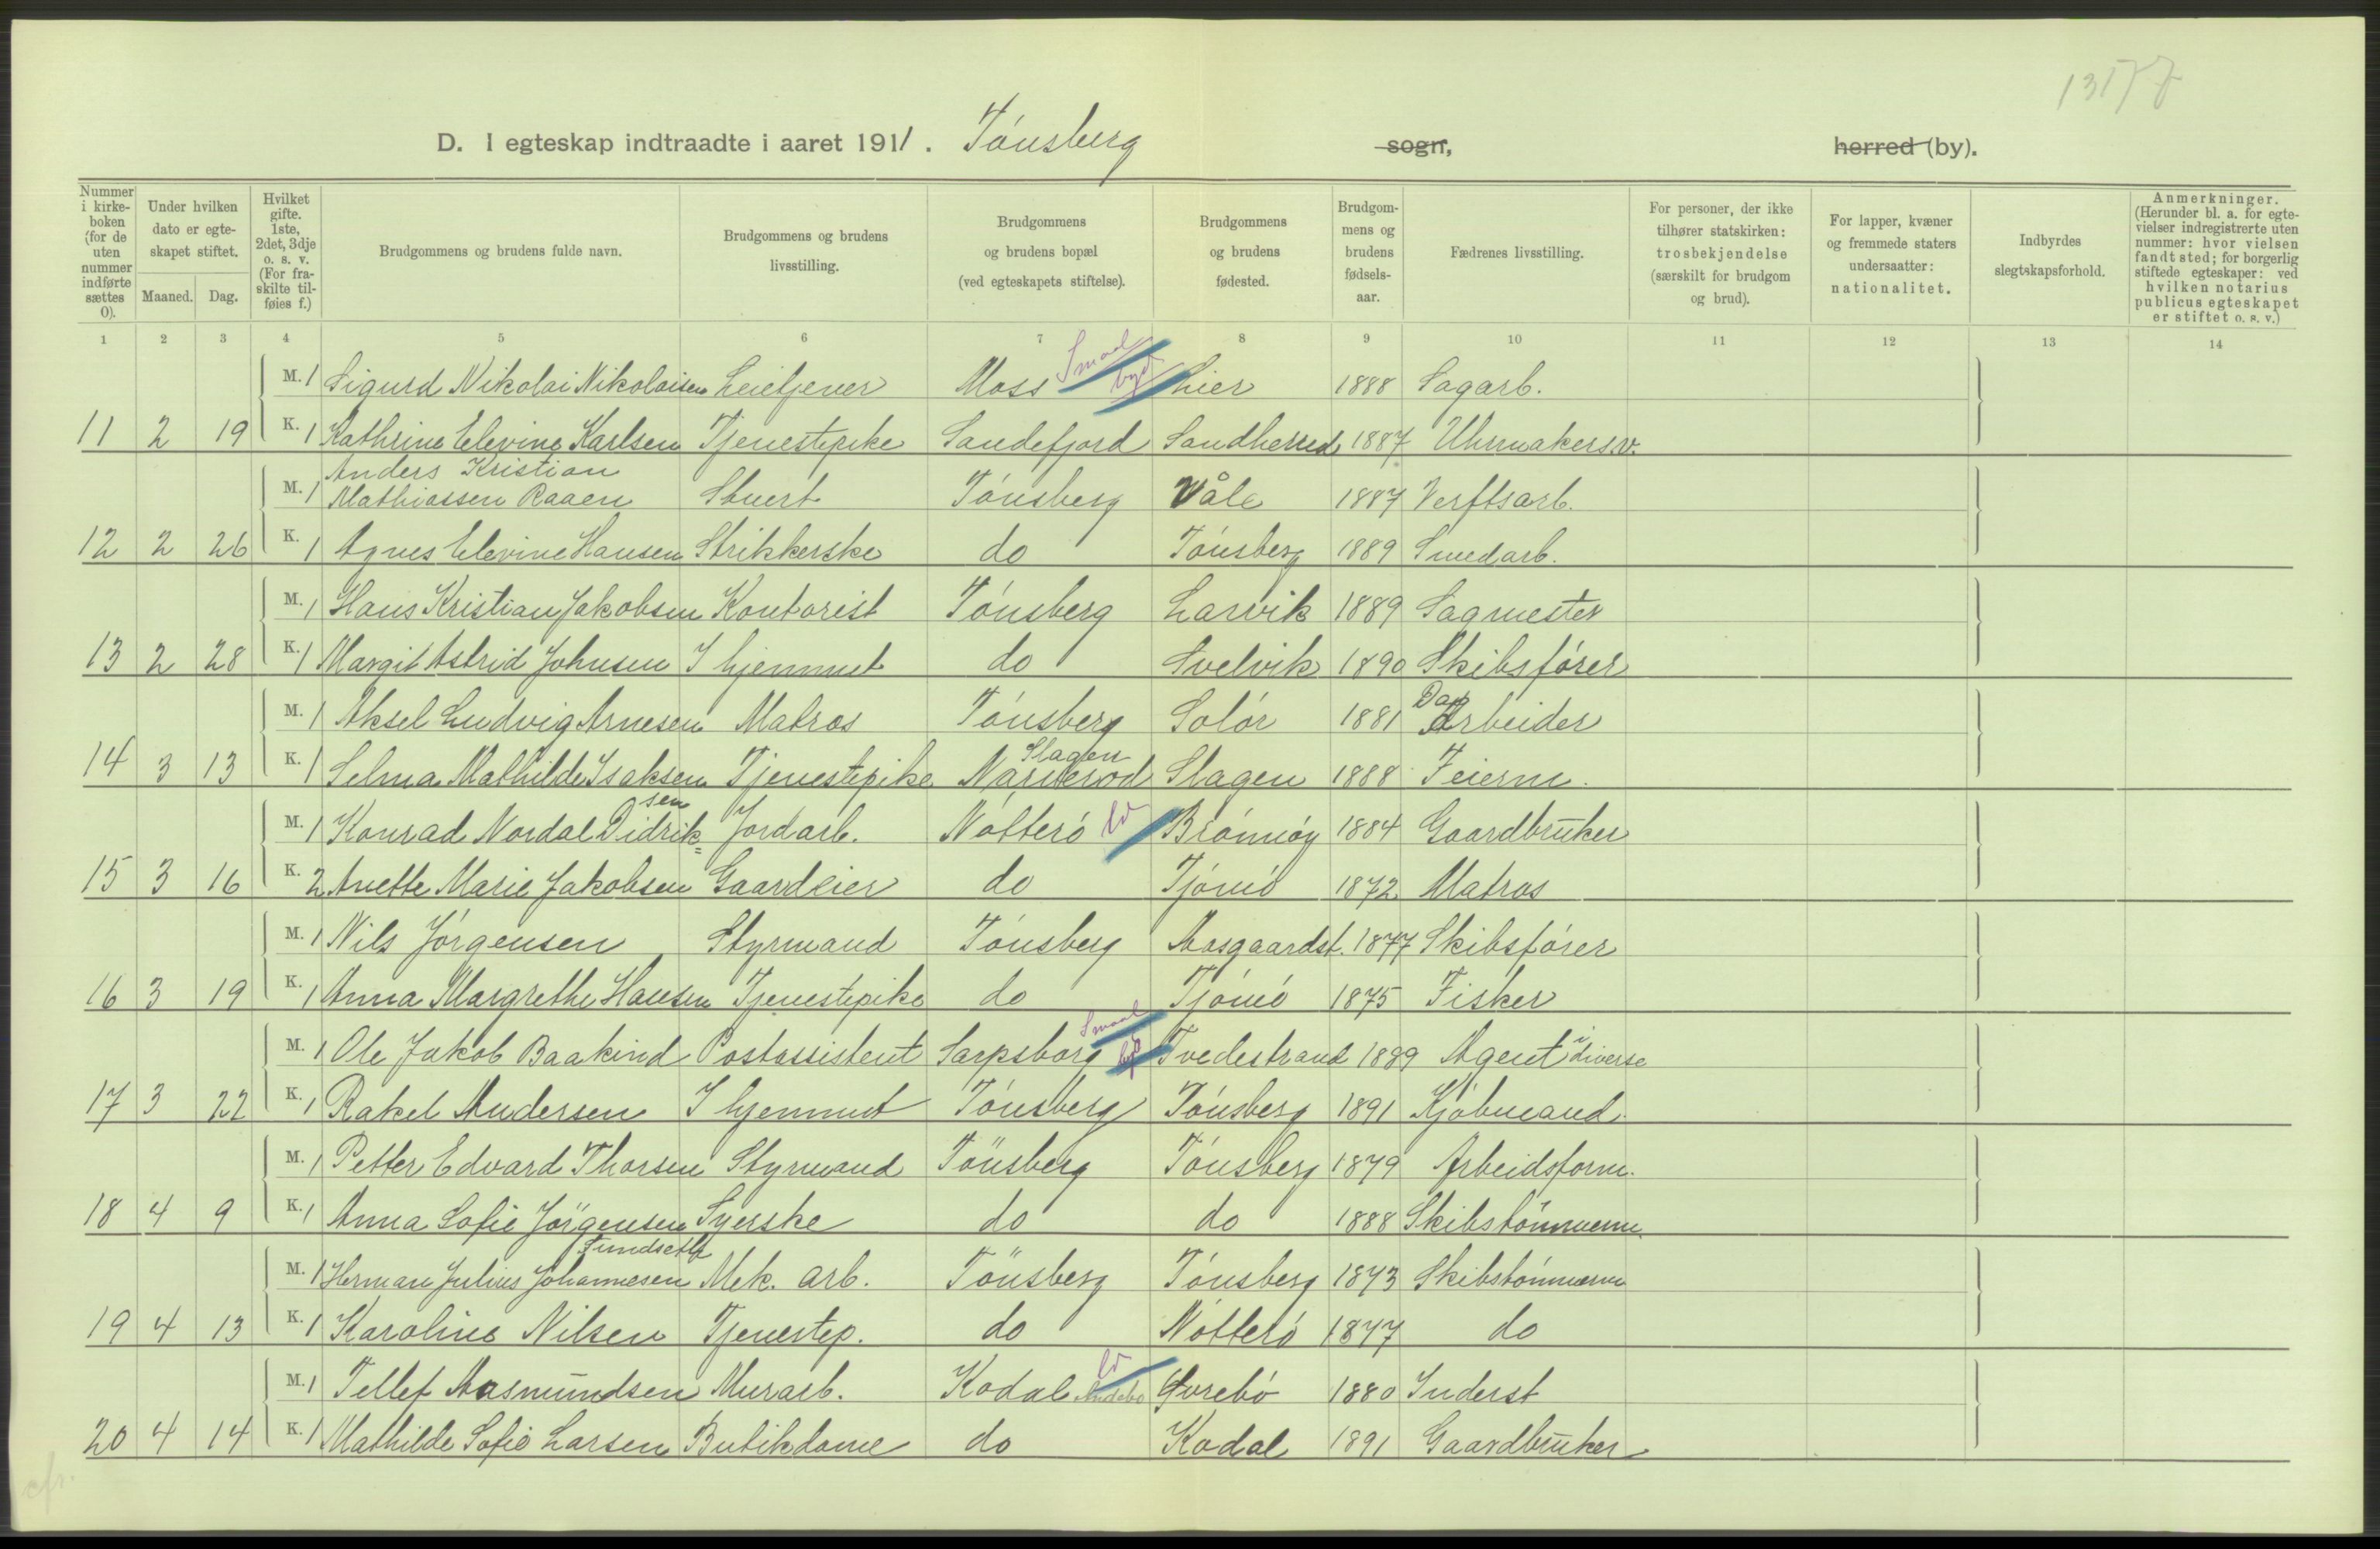 13177
D. I egteskap indtraadte i aaret 1911. Tónsberg sogn, herred (by).
Nummer i kirkeboken (for de uten nummer indførte sættes 0).
Under hvilken dato er egteskapet stiftet.
Maaned. Dag.
Hvilket gifte. 1ste, 2det, 3dje o. s. v. (For fraskilte tilføies f.)
Brudgommens og brudens fulde navn.
Brudgommens og brudens livsstilling.
Brudgommens og brudens bopæl (ved egteskapets stiftelse).
Brudgommens og brudens fødested.
Brudgommens og brudens fødselsaar.
Fædrenes livsstilling.
For personer, der ikke tilhører statskirken: trosbekjendelse (særskilt for brudgom og brud).
For lapper, kvæner og fremmede staters undersaatter: nationalitet.
Indbyrdes slegtskapsforhold.
Anmerkninger. (Herunder bl. a. for egtevielser indregistrerte uten nummer: hvor vielsen fandt sted; for borgerlig stiftede egteskaper: ved hvilken notarius publicus egteskapet er stiftet o. s. v.)
1 2 3 4 5 6 7 8 9 10 11 12 13 14
M. 1 Sigurd Nikolai Nikolaisen Leietjener Moss Smaal byd Lier 1888 Sagarb.
11 2 19 K. 1 Kathrine Elevine Karlsen Tjenestepike Sandefjord Sandherred 1887 Uhrmakersv.
Anders Kristian
M. 1 Mathiassen Raaen Stuert Tónsberg Våle 1887 Verftsarb.
12 2 26 K. 1 Agnes Elevine Hansen Strikkerske do Tónsberg 1889 Smedarb.
M. 1 Hans Kristian Jakobsen Kontorist Tónsberg Larvik 1889 Sagmester
13 2 28 K. 1 Margit Astrid Johnsen I hjemmet do Svelvik 1890 Skibsfórer
M. 1 Aksel Ludvig Arnesen Matros Tónsberg Solór 1881 Dag Arbeider
Slagen
14 3 13 K. 1 Selma Mathilde Isaksen Tjenestepike Narverod Slagen 1888 Feierm.
sen
M. 1 Konrad Nordal Didrik= Jordarb. Nótteró Brónnóy 1884 Gaardbruker
15 3 16 K. 2 Anette Marie Jakobsen Gaardeier do Tjómó 1872 Matros
M. 1 Nils Jórgensen Styrmand Tónsberg Aasgaardst. 1877 Skibsfórer
16 3 19 K. 1 Anna Margrethe Hansen Tjenestepike do Tjómó 1875 Fisker
M. 1 Ole Jakob Baakind Postassistent Sarpsborg Smaal Tvedestrand 1889 Agent i diverse
17 3 22 K. 1 Rakel Andersen I hjemmet Tónsberg Tónsberg 1891 Kjóbmand
M. 1 Petter Edvard Thorsen Styrmand Tönsberg Tónsberg 1879 Arbeidsform.
18 4 9 K. 1 Anna Sofie Jörgensen Syerske do do 1888 Skibstómmerm.
Tundseth
M. 1 Herman Julius Johannesen Mek. arb. Tönsberg Tónsberg 1873 Skibstómmerm
19 4 13 K. 1 Karoline Nilsen Tjenestep. do Nótteró 1877 do
M. 1 Tellef Aasmundsen Murarb. Kodal Andebo Øvrebó 1880 Inderst
20 4 14 K. 1 Mathilde Sofie Larsen Butikdame do Kodal 1891 Gaardbruker
cfr.